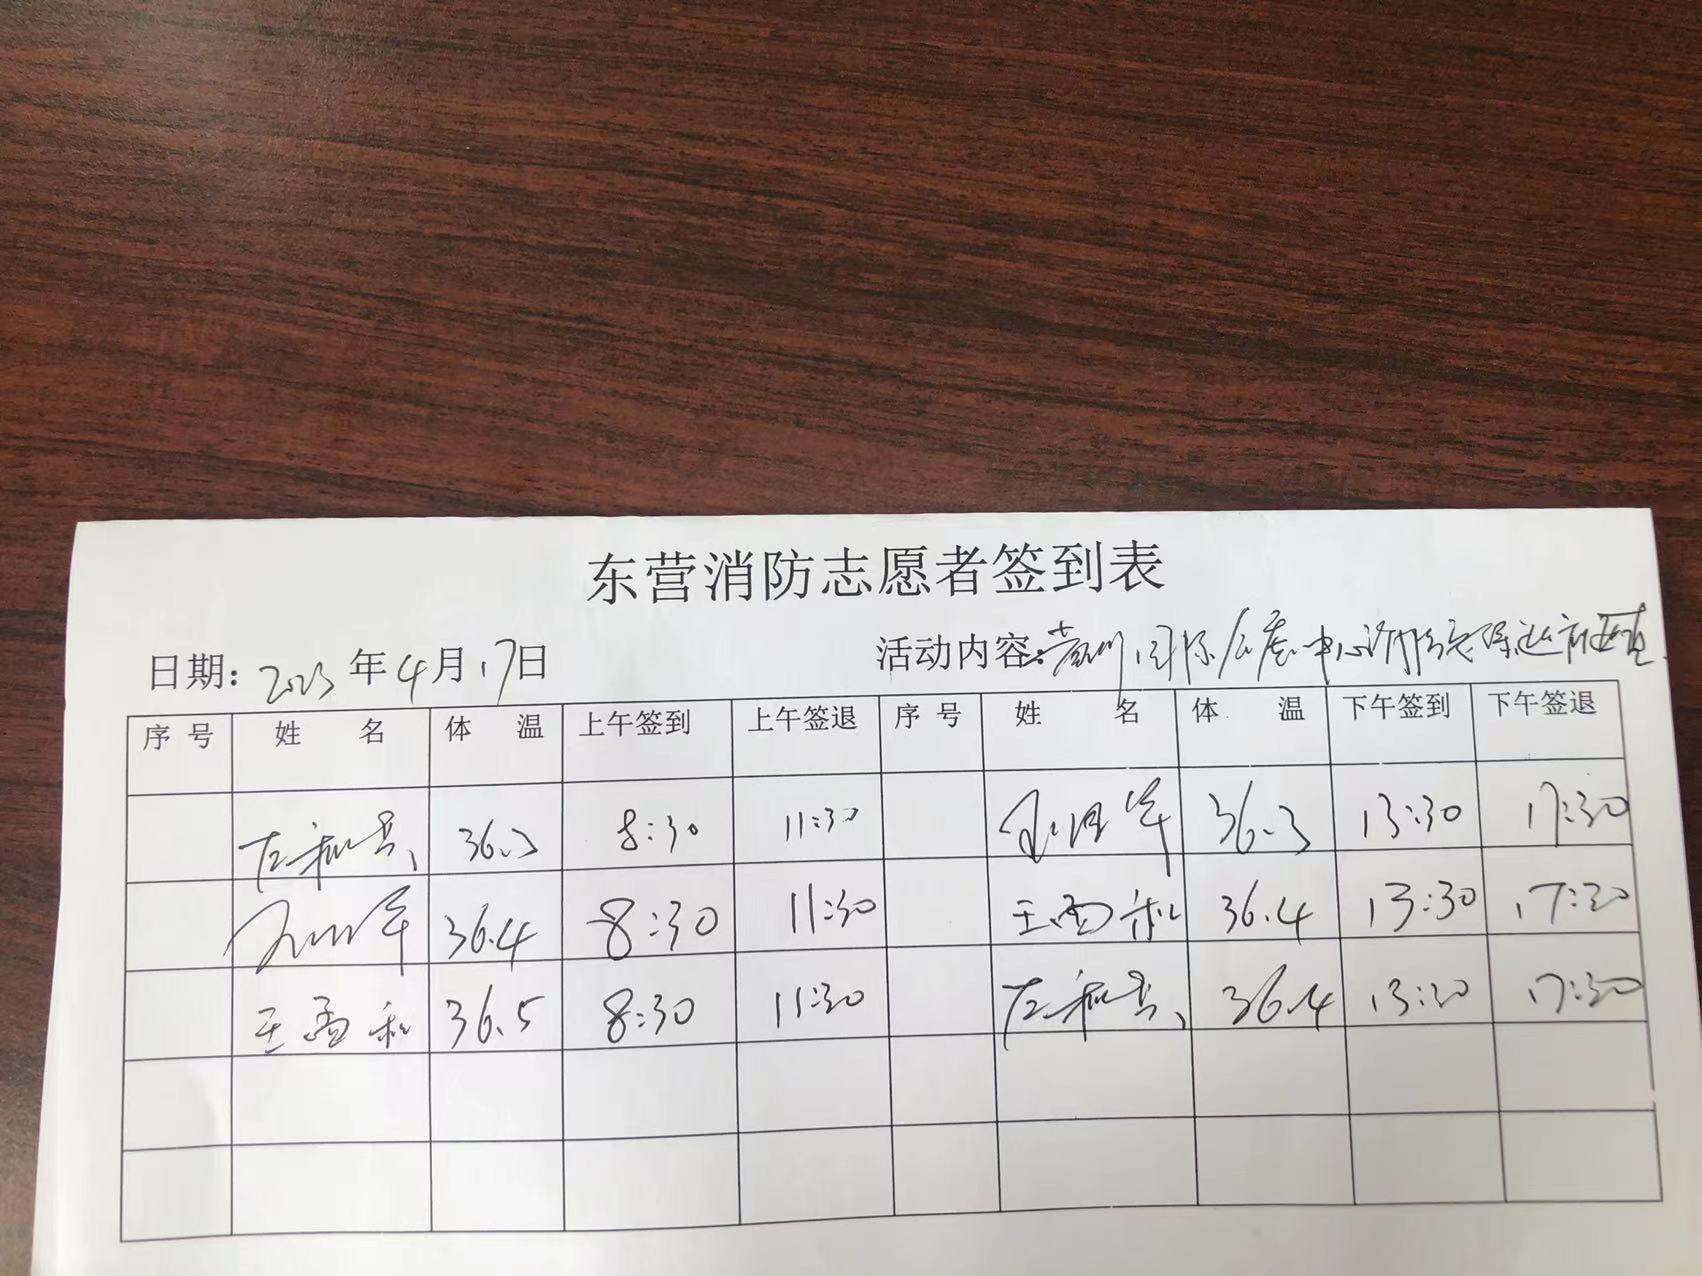 东营消防志愿者签到表
日期: 2023 年 4 月 17 日 活动内容: 黄河国际会展中心
序号 姓名 体温 上午签到 上午签退 序号 姓名 体温 下午签到 下午签退
36.3 8:30 11:30 36.3 13:30 17:30
36.4 8:30 11:30 王孟和 36.4 13:30 17:30
王孟和 36.5 8:30 11:30 36.4 13:30 17:30